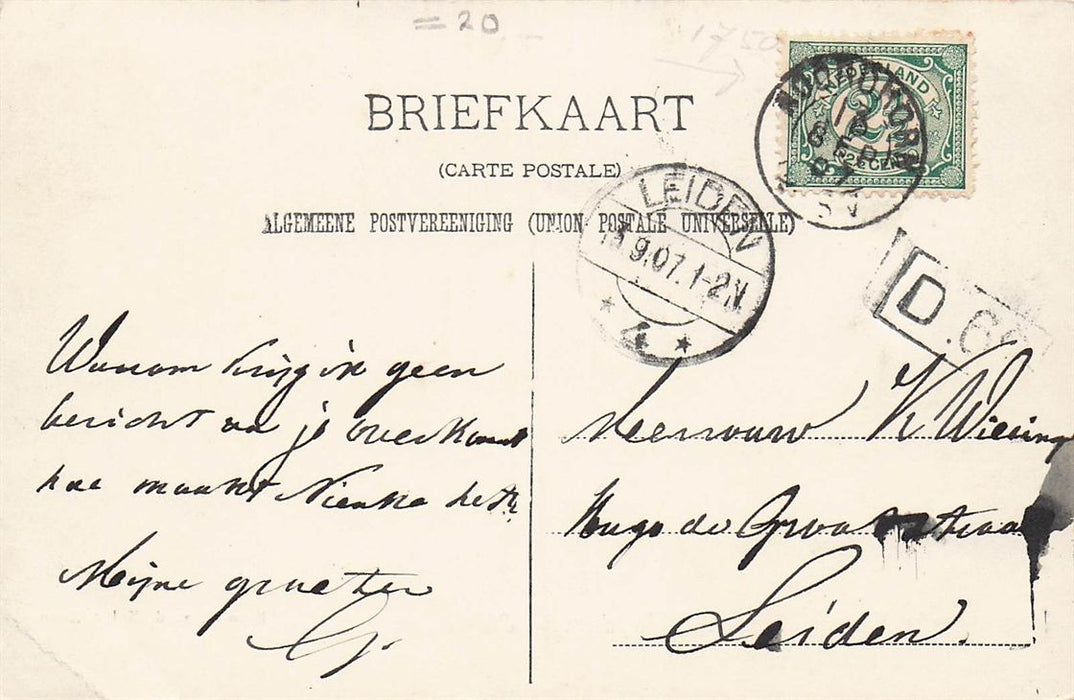 = 20
1750
BRIEFKAART
(CARTE POSTALE)
ALGEMEENE POSTVEREENIGING (UNION POSTALE UNIVERSELLE)
NEDERLAND
2½
CENT
12 SEP
LEIDEN
13.9.07.1-2N
* 4 *
D.6
Waarom krijg ik geen
bericht van je overkomst
hoe maakt Nienke het?
Mijne groeten
G.
Mevrouw K Wiersing
Hugo de Grootstraat
Leiden.